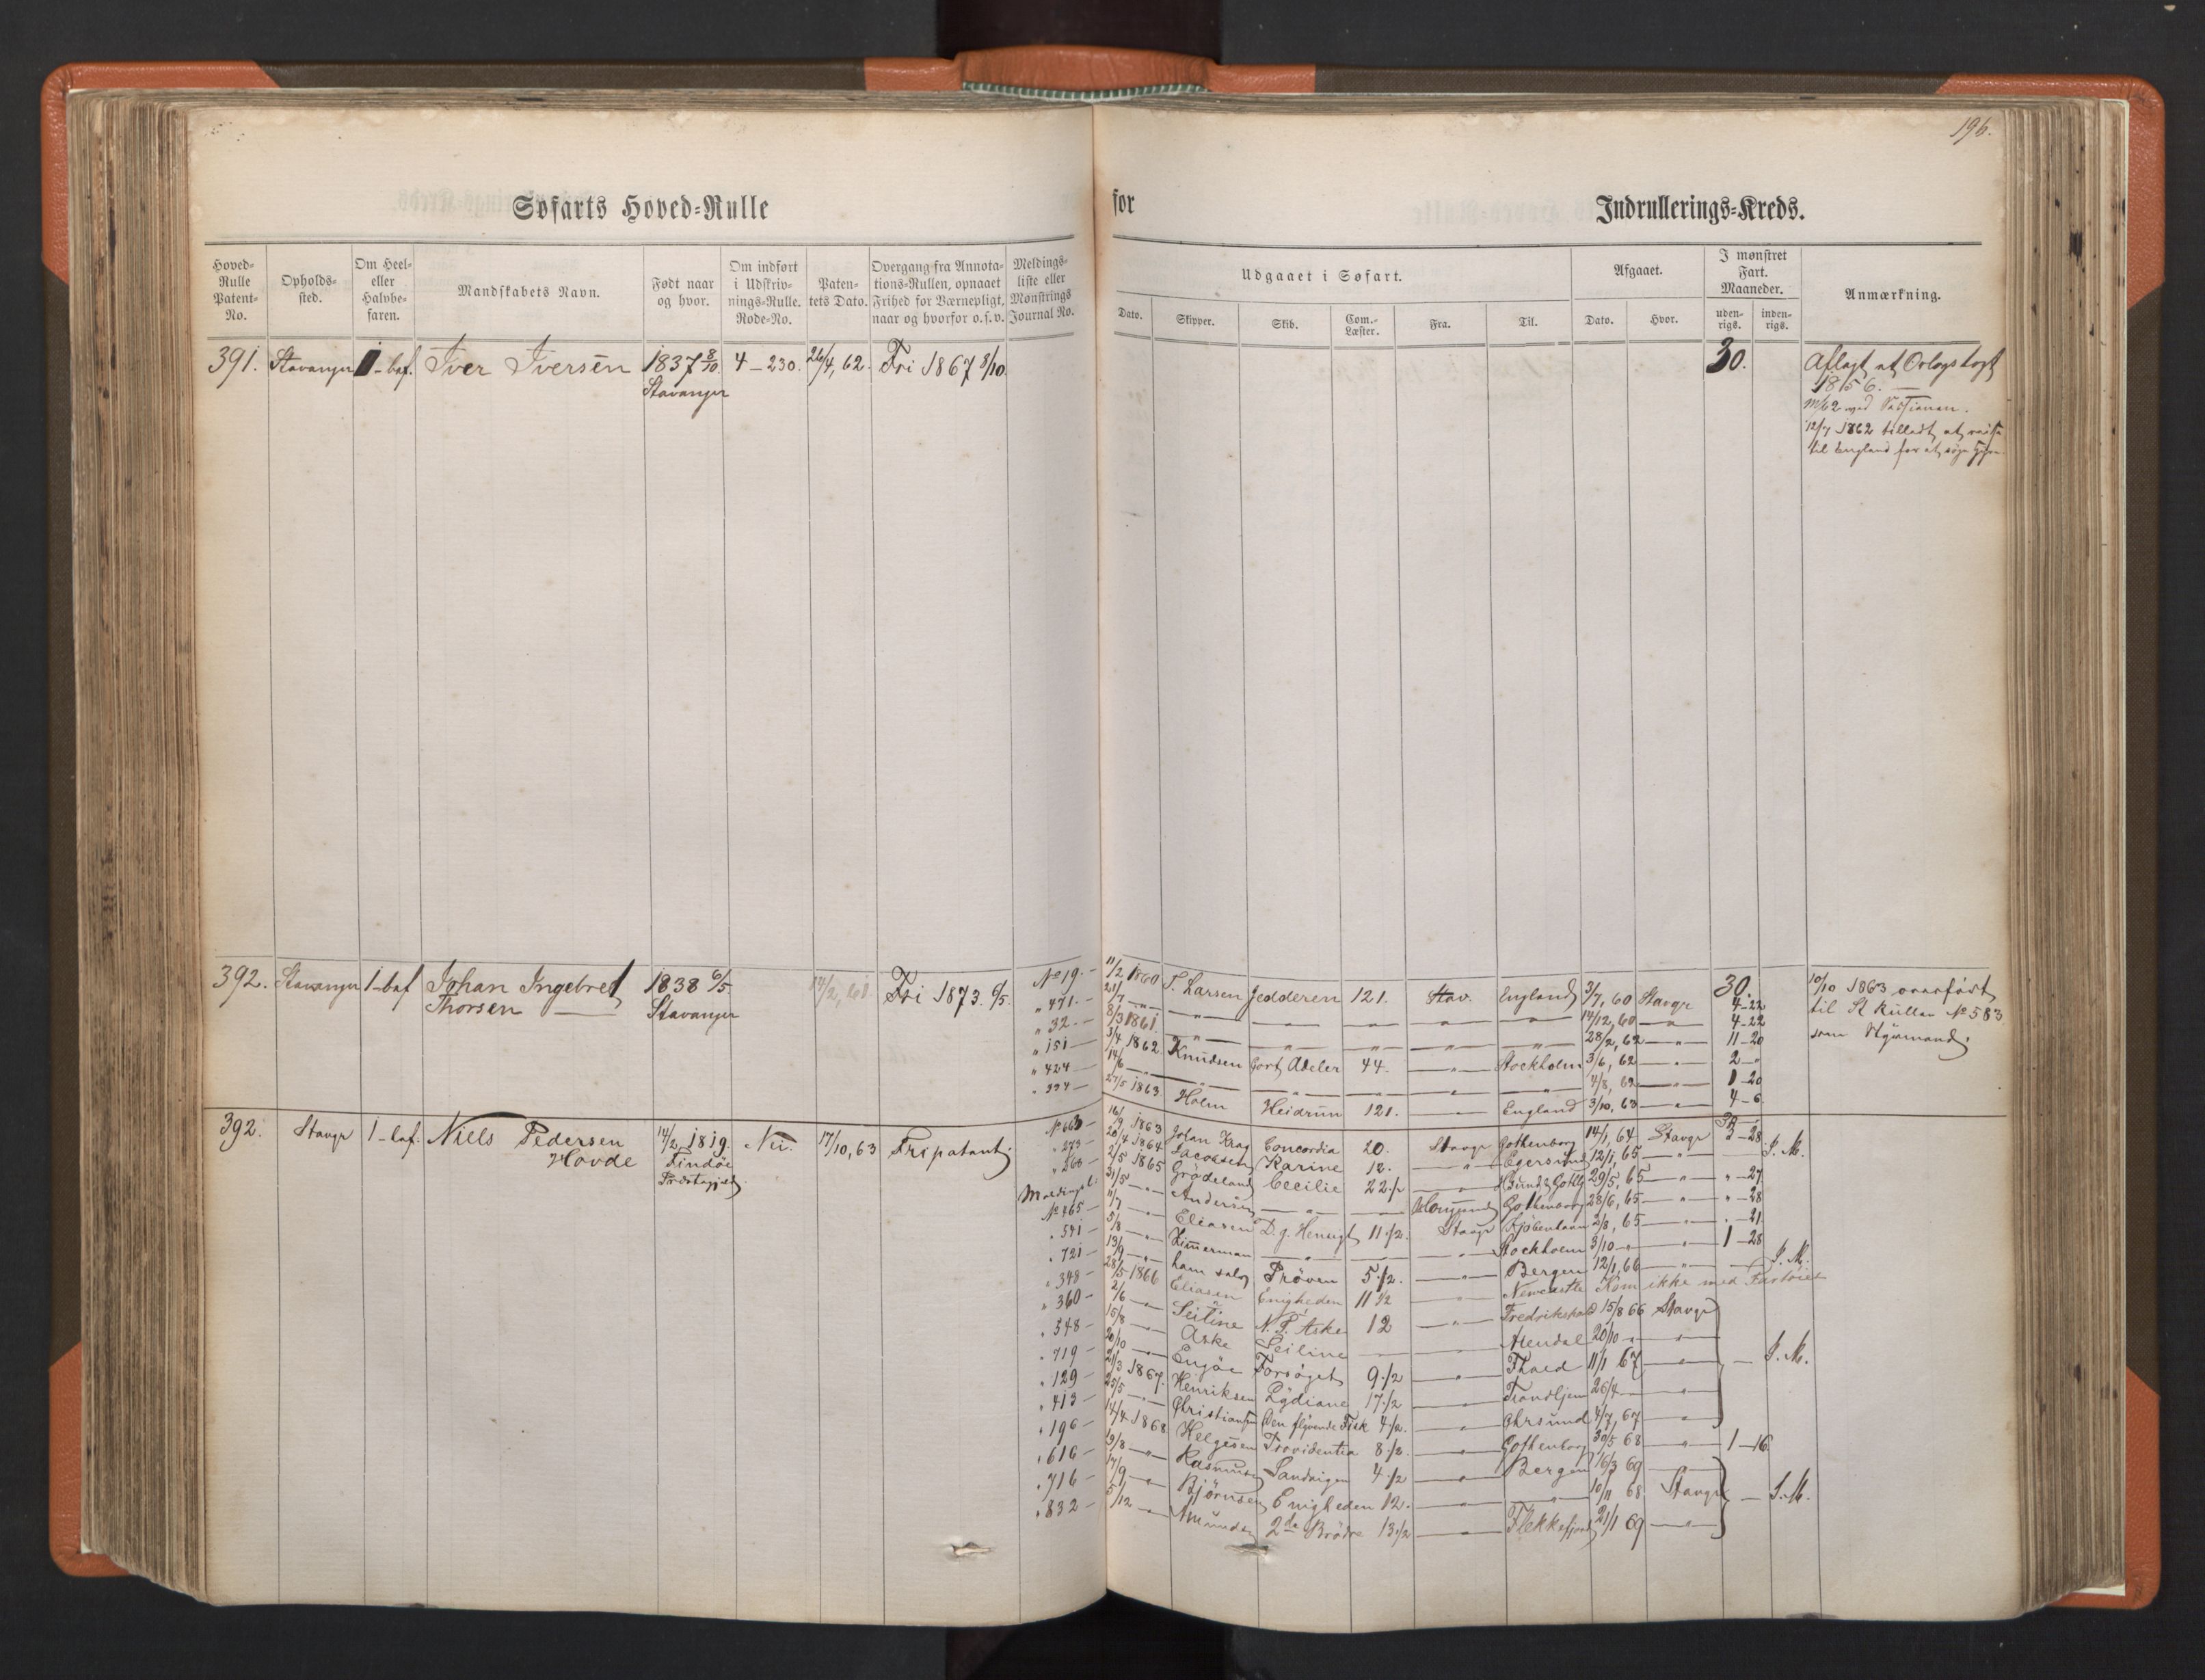 196.
Søfarts Hoved-Rulle for Indrullerings-Kreds.
Hoved-Rulle Patent-No. Opholds-sted. Om Heel- eller Halvbe-faren. Mandskabets Navn. Født naar og hvor. Om indført i Udskriv-nings-Rulle. Rode-No. Paten-tets Dato. Overgang fra Annota-tions-Rullen, opnaaet Frihed for Værnepligt, naar og hvorfor o.s.v. Meldings-liste eller Mønstrings Journal No. Udgaaet i Søfart. Afgaaet. I mønstret Fart. Maaneder. Anmærkning.
Dato. Skipper. Skib. Com.-Læster. Fra. Til. Dato. Hvor. uden-rigs. inden-rigs.
391. Stavanger 1-baf. Iver Iversen 1837 8/10. 4-230. 26/4, 62. Fri 1867 8/10. 30. Aflagt et Orlogstogt
Stavanger 1856.
12/7 1862 tilladt at reise
til England for at søge Hyre
392. Stavanger 1-baf Johan Ingebret 1838 6/5. 14/2, 61 Fri 1873 6/5. No 19. 11/2 1860 T. Larsen Jedderen 121. Stav. England 3/7, 60 Stavgr 30. 4-22 10/10 1863 overført
Thorsen Stavanger " 471. 21/7 — " — — " — 14/12, 60 — " — 4-22 til St Rullen No 583
" 32. 8/3 1861. — " — — " — 28/2, 62 — " — 11-20 som Styrmand.
" 151 3/4 1862 Knudsen Cort Adeler 44. — " — Stockholm 3/6, 62 — " — 2-"
" 424 14/6 — " — — " — 4/8, 62 — " — 1-20
" 334 27/5 1863. Holm Heidrun 121. — " — England 3/10, 63 — " — 4-6
392. Stavgr 1-baf. Niels Pedersen 14/2 1819. Nei. 17/10, 63 Fripatent. No 663 16/9 1863 Johan Krag Concordia 20. Stavgr Gothenborg 14/1, 64 Stavgr 3-28
Hovde Findöe " 273 20/4 1864 Jacobsen Karine 12. — " — Egersund 12/1, 65 — " — I. M.
Præstegjeld. " 260 2/5 1865 Grödeland Cecilie 22 1/2 — " — 29/5, 65 — " — "-27
Meldingsl. 31/5 — " — Andersen — " — Gothenborg 28/6, 65 — " — "-28
No 465 11/7 — " — Eliasen D. g. Hensigt 11 1/2. Stavgr Kjöbenhavn 2/8, 65 — " — "-21
" 541 5/8 — " — Zimmerman — " — Stockholm 3/10 — " — 1-28
" 721 13/9 — " — ham selv Pröven 5 1/2. — " — Bergen 12/1, 66 — " — I. M.
" 348 28/5 1866 Eliasen Enigheden 11 1/2 — " — Newcastle Kom ikke med Fartöiet
" 360 2/6 — " — Seiline N. P. Aske 12 — " — Fredrikshald 15/8 66 Stavgr
" 548 15/8 — " — Aske Seiline — — Arendal 20/10 — " —
" 719 20/10 — " — Engöe Forsöget 9 1/2 — " — 11/1 67 — " — I. M.
" 129 21/3 1867. Henriksen Lydiane 17 1/2 — " — Trondhjem 26/4 — " —
" 413 25/5 — " — Christiansen Den flyvende Fisk 4 1/2. — " — 4/7, 67 — " —
" 196 14/4 1868 Helgesen Providentia 8 1/2. — " — Gothenborg 30/5 68 — " — 1-16
" 616 19/8 — " — Rasmusen Sandvigen 4 1/2 — " — Bergen 16/3 69 — " —
" 716 17/9 — " — Björnsen Enigheden 12. — " — — " — 10/11 68 Stavgr — I. M.
" 832 5/12 — " — Amundsen 2de Brödre 13 1/2 — " — Flekkefjord 21/1 69 — " —